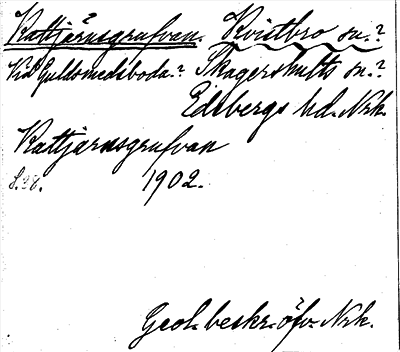 Kattjärnsgrufvan. Kvistbro sn.?
Vid Guldsmedsboda.? Skagershults sn.?
Edsbergs hd. Nrk.
Kattjärnsgrufvan
s. 28. 1902.
Geol. beskr. öfv. Nrk.